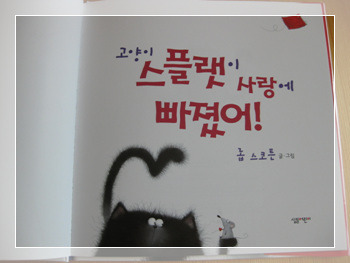 고양이
스플랫이
사랑에
빠졌어!
롭 스코튼 글·그림